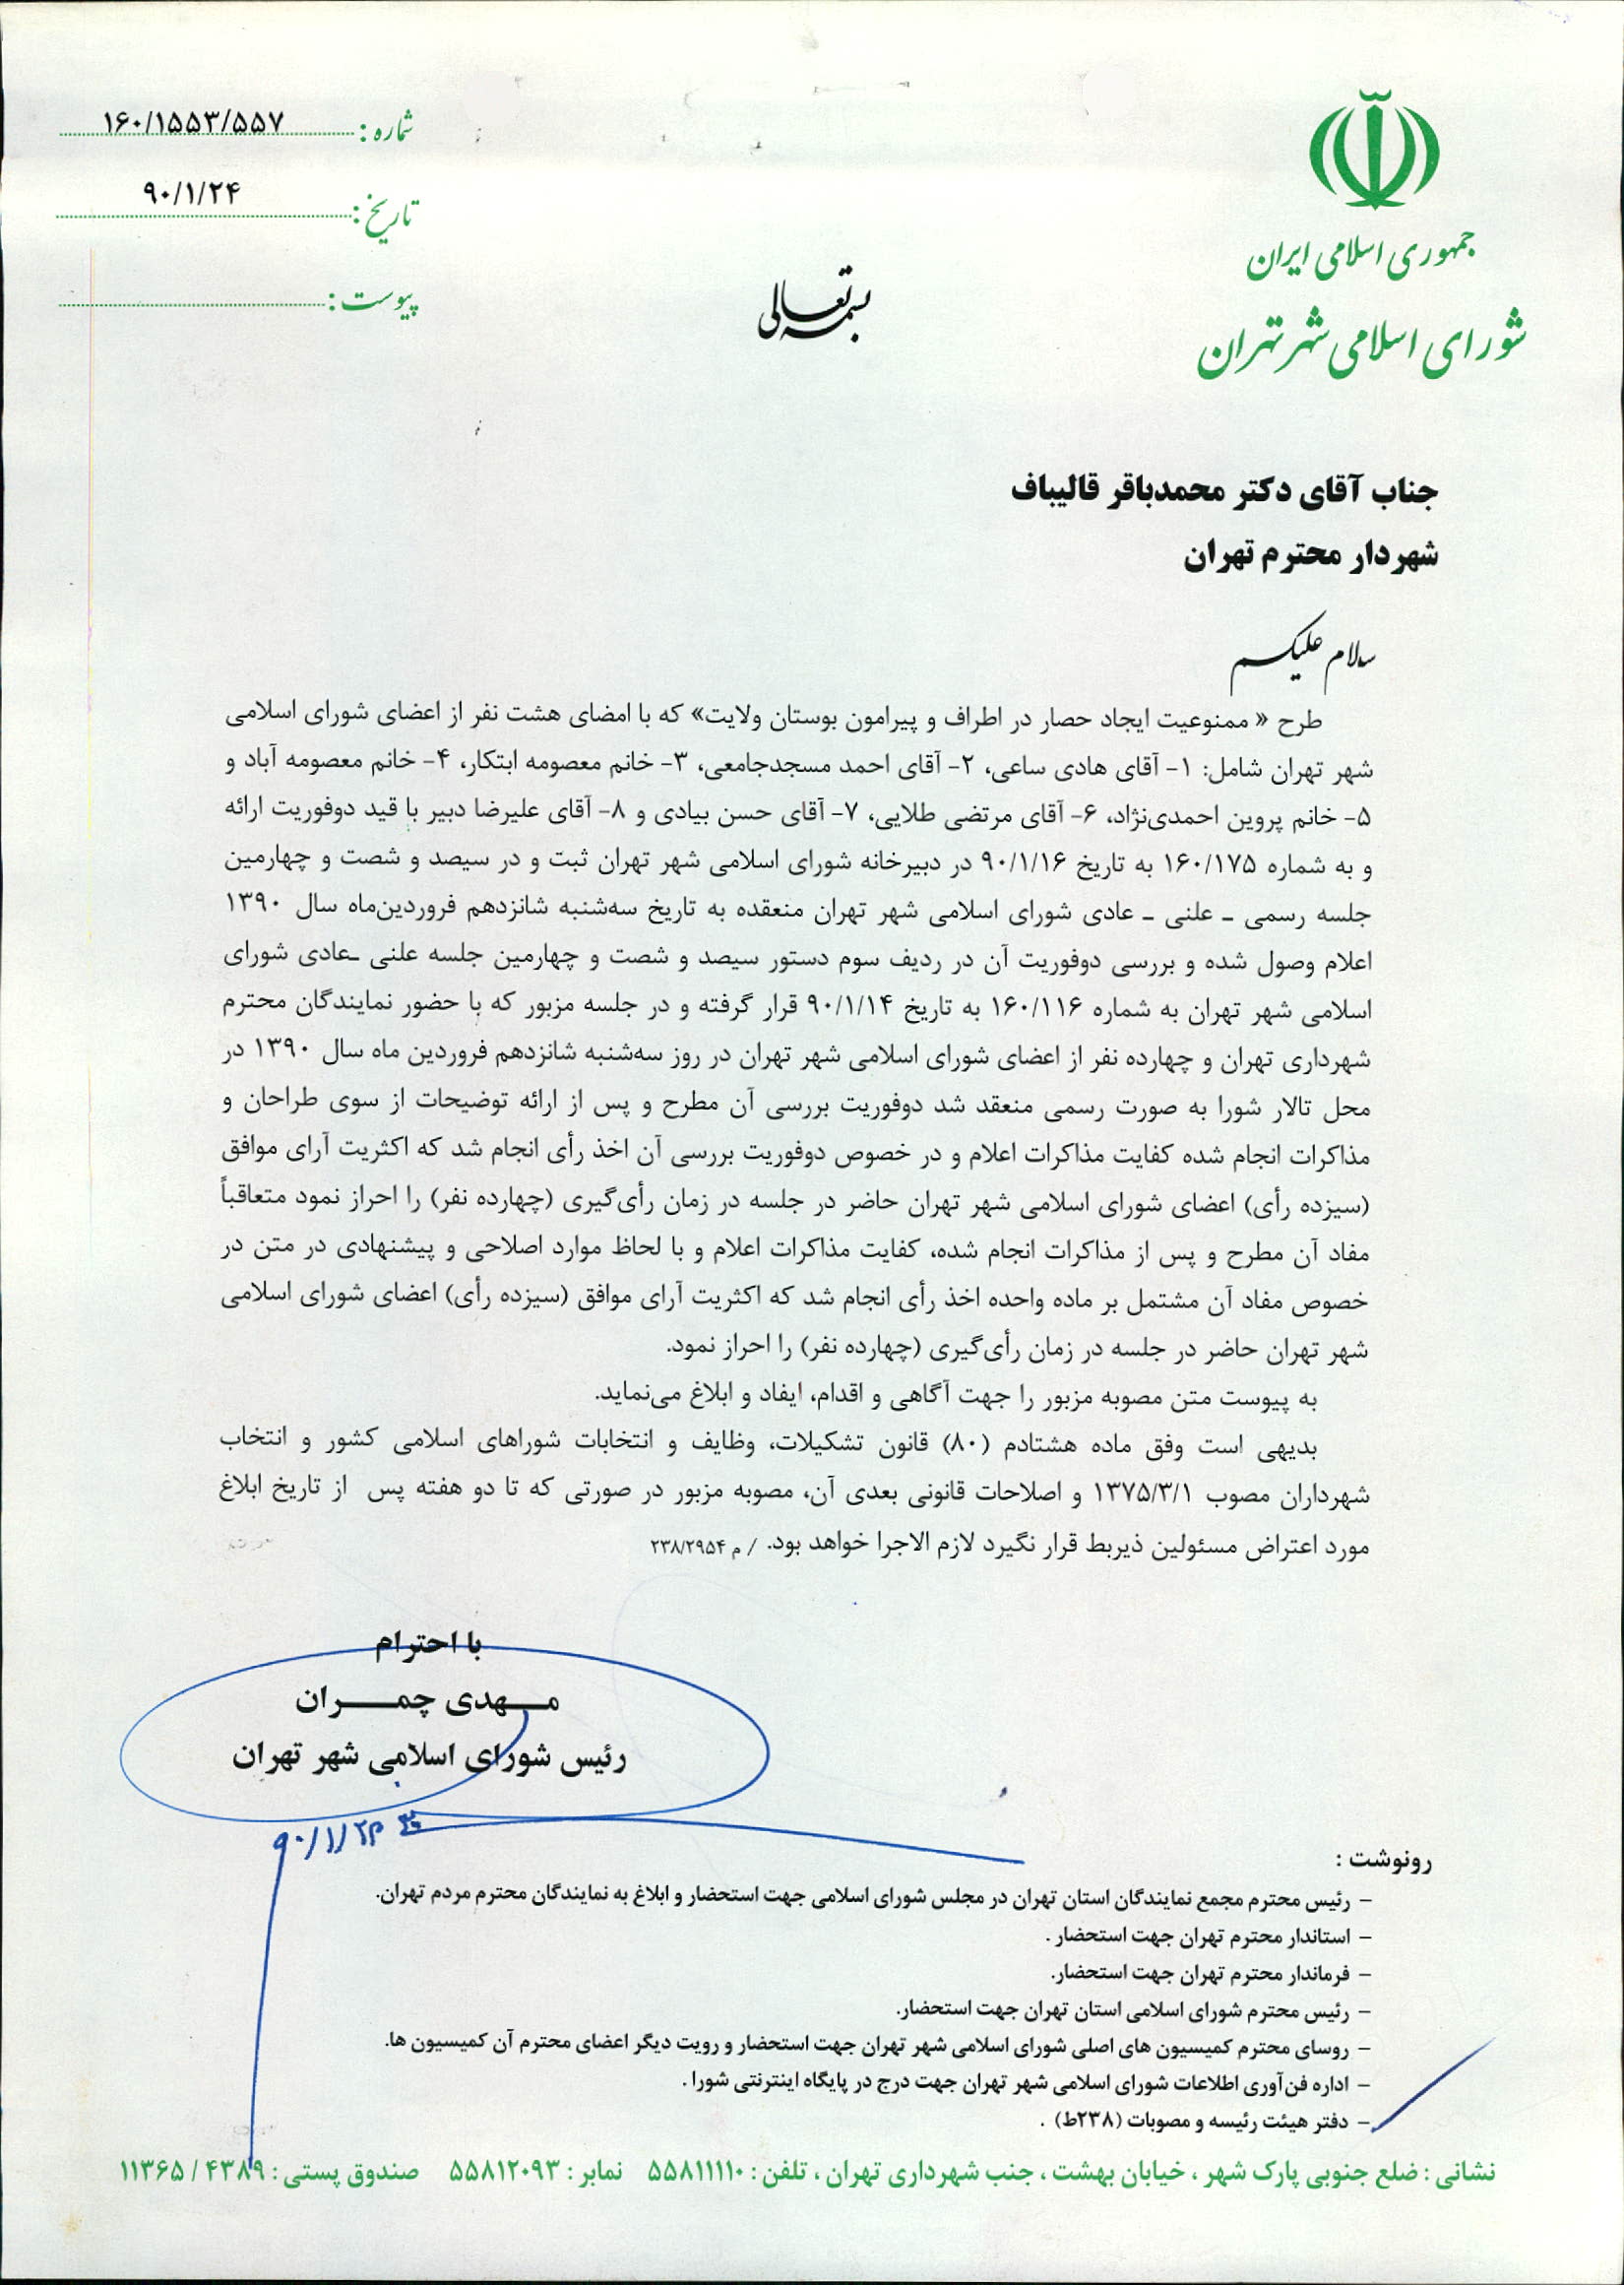 جمهوری اسلامی ایران
شورای اسلامی شهر تهران
شماره : ۱۶۰/۱۵۵۳/۵۵۷
تاریخ : ۹۰/۱/۲۴
پیوست :
بسمه تعالی
جناب آقای دکتر محمدباقر قالیباف
شهردار محترم تهران
سلام علیکم
طرح « ممنوعیت ایجاد حصار در اطراف و پیرامون بوستان ولایت» که با امضای هشت نفر از اعضای شورای اسلامی
شهر تهران شامل: ۱- آقای هادی ساعی، ۲- آقای احمد مسجدجامعی، ۳- خانم معصومه ابتکار، ۴- خانم معصومه آباد و
۵- خانم پروین احمدی‌نژاد، ۶- آقای مرتضی طلایی، ۷- آقای حسن بیادی و ۸- آقای علیرضا دبیر با قید دوفوریت ارائه
و به شماره ۱۶۰/۱۷۵ به تاریخ ۹۰/۱/۱۶ در دبیرخانه شورای اسلامی شهر تهران ثبت و در سیصد و شصت و چهارمین
جلسه رسمی ـ علنی ـ عادی شورای اسلامی شهر تهران منعقده به تاریخ سه‌شنبه شانزدهم فروردین‌ماه سال ۱۳۹۰
اعلام وصول شده و بررسی دوفوریت آن در ردیف سوم دستور سیصد و شصت و چهارمین جلسه علنی ـعادی شورای
اسلامی شهر تهران به شماره ۱۶۰/۱۱۶ به تاریخ ۹۰/۱/۱۴ قرار گرفته و در جلسه مزبور که با حضور نمایندگان محترم
شهرداری تهران و چهارده نفر از اعضای شورای اسلامی شهر تهران در روز سه‌شنبه شانزدهم فروردین ماه سال ۱۳۹۰ در
محل تالار شورا به صورت رسمی منعقد شد دوفوریت بررسی آن مطرح و پس از ارائه توضیحات از سوی طراحان و
مذاکرات انجام شده کفایت مذاکرات اعلام و در خصوص دوفوریت بررسی آن اخذ رأی انجام شد که اکثریت آرای موافق
(سیزده رأی) اعضای شورای اسلامی شهر تهران حاضر در جلسه در زمان رأی‌گیری (چهارده نفر) را احراز نمود متعاقباً
مفاد آن مطرح و پس از مذاکرات انجام شده، کفایت مذاکرات اعلام و با لحاظ موارد اصلاحی و پیشنهادی در متن در
خصوص مفاد آن مشتمل بر ماده واحده اخذ رأی انجام شد که اکثریت آرای موافق (سیزده رأی) اعضای شورای اسلامی
شهر تهران حاضر در جلسه در زمان رأی‌گیری (چهارده نفر) را احراز نمود.
به پیوست متن مصوبه مزبور را جهت آگاهی و اقدام، ایفاد و ابلاغ می‌نماید.
بدیهی است وفق ماده هشتادم (۸۰) قانون تشکیلات، وظایف و انتخابات شوراهای اسلامی کشور و انتخاب
شهرداران مصوب ۱۳۷۵/۳/۱ و اصلاحات قانونی بعدی آن، مصوبه مزبور در صورتی که تا دو هفته پس از تاریخ ابلاغ
مورد اعتراض مسئولین ذیربط قرار نگیرد لازم الاجرا خواهد بود. / م ۲۳۸/۲۹۵۴
با احترام
مـــهدی چمــــــران
رئیس شورای اسلامی شهر تهران
۹۰/۱/۲۳
رونوشت :
– رئیس محترم مجمع نمایندگان استان تهران در مجلس شورای اسلامی جهت استحضار و ابلاغ به نمایندگان محترم مردم تهران.
– استاندار محترم تهران جهت استحضار .
– فرماندار محترم تهران جهت استحضار.
– رئیس محترم شورای اسلامی استان تهران جهت استحضار.
– روسای محترم کمیسیون های اصلی شورای اسلامی شهر تهران جهت استحضار و رویت دیگر اعضای محترم آن کمیسیون ها.
– اداره فن‌آوری اطلاعات شورای اسلامی شهر تهران جهت درج در پایگاه اینترنتی شورا .
– دفتر هیئت رئیسه و مصوبات (۲۳۸ط) .
نشانی : ضلع جنوبی پارک شهر ، خیابان بهشت ، جنب شهرداری تهران ، تلفن : ۵۵۸۱۱۱۱۰ نمابر : ۵۵۸۱۲۰۹۳ صندوق پستی : ۴۳۸۹ / ۱۱۳۶۵